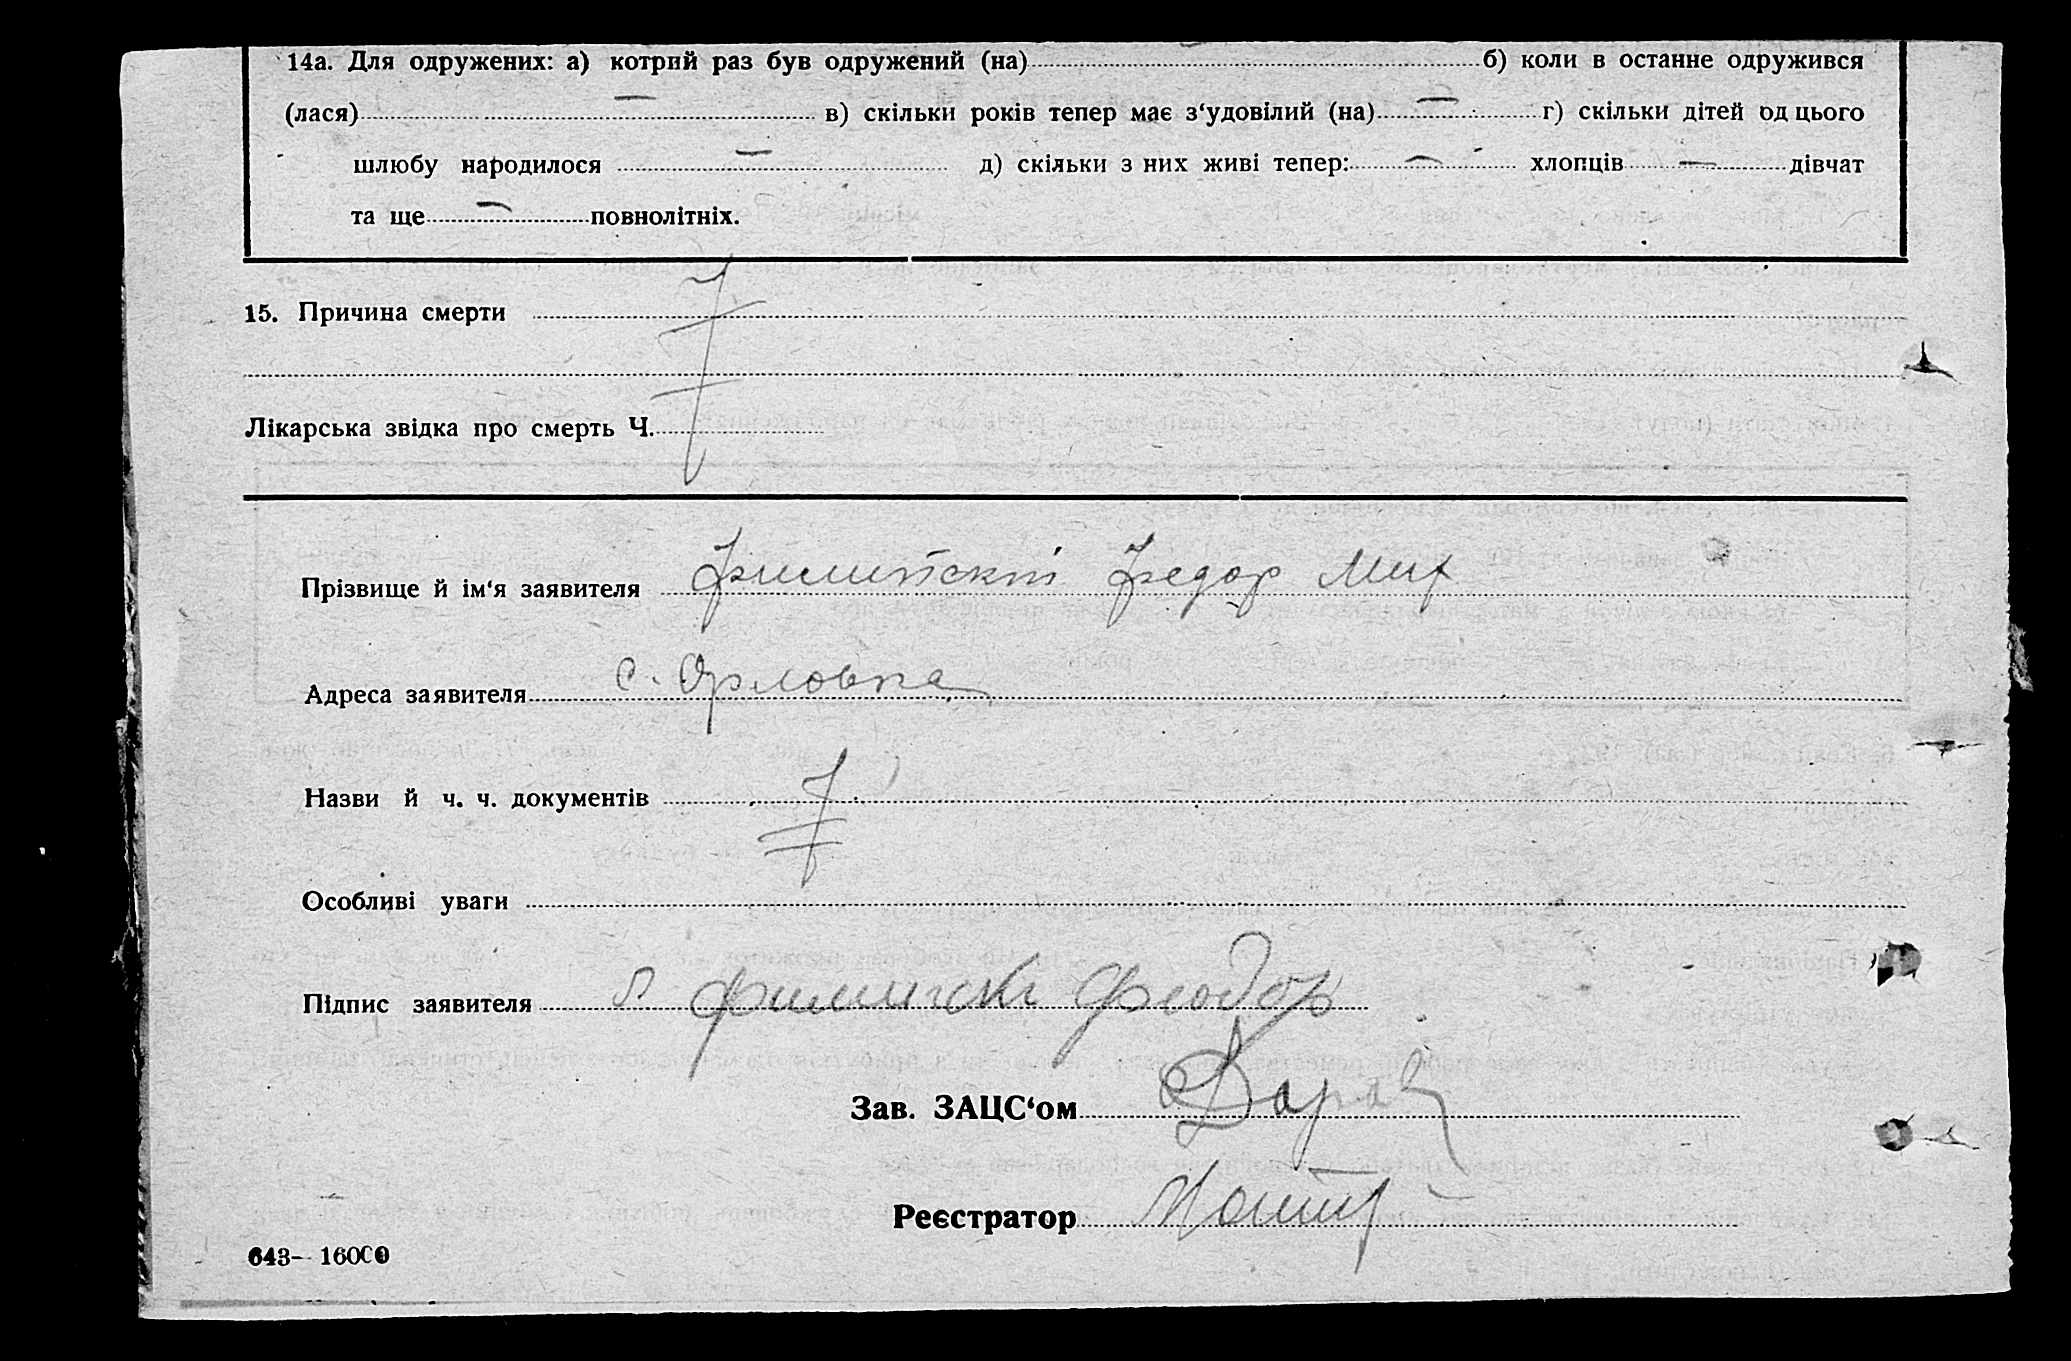 14а. Для одружених: а) котрий раз був одружений (на) б) коли в останне одружився
(лася) — в) скільки років тепер має з‘удовілий (на) — г) скільки дітей од цього
шлюбу народилося — д) скільки з них живі тепер: — хлопців — дівчат
та ще — повнолітніх.
15. Причина смерти
Лікарська звідка про смерть Ч.
Прізвище й ім‘я заявителя Федор Мих
Адреса заявителя с. Орловка
Назви й ч. ч. документів
Особливі уваги
Підпис заявителя Феодор
Зав. ЗАЦС‘ом
Реєстратор
643— 16000